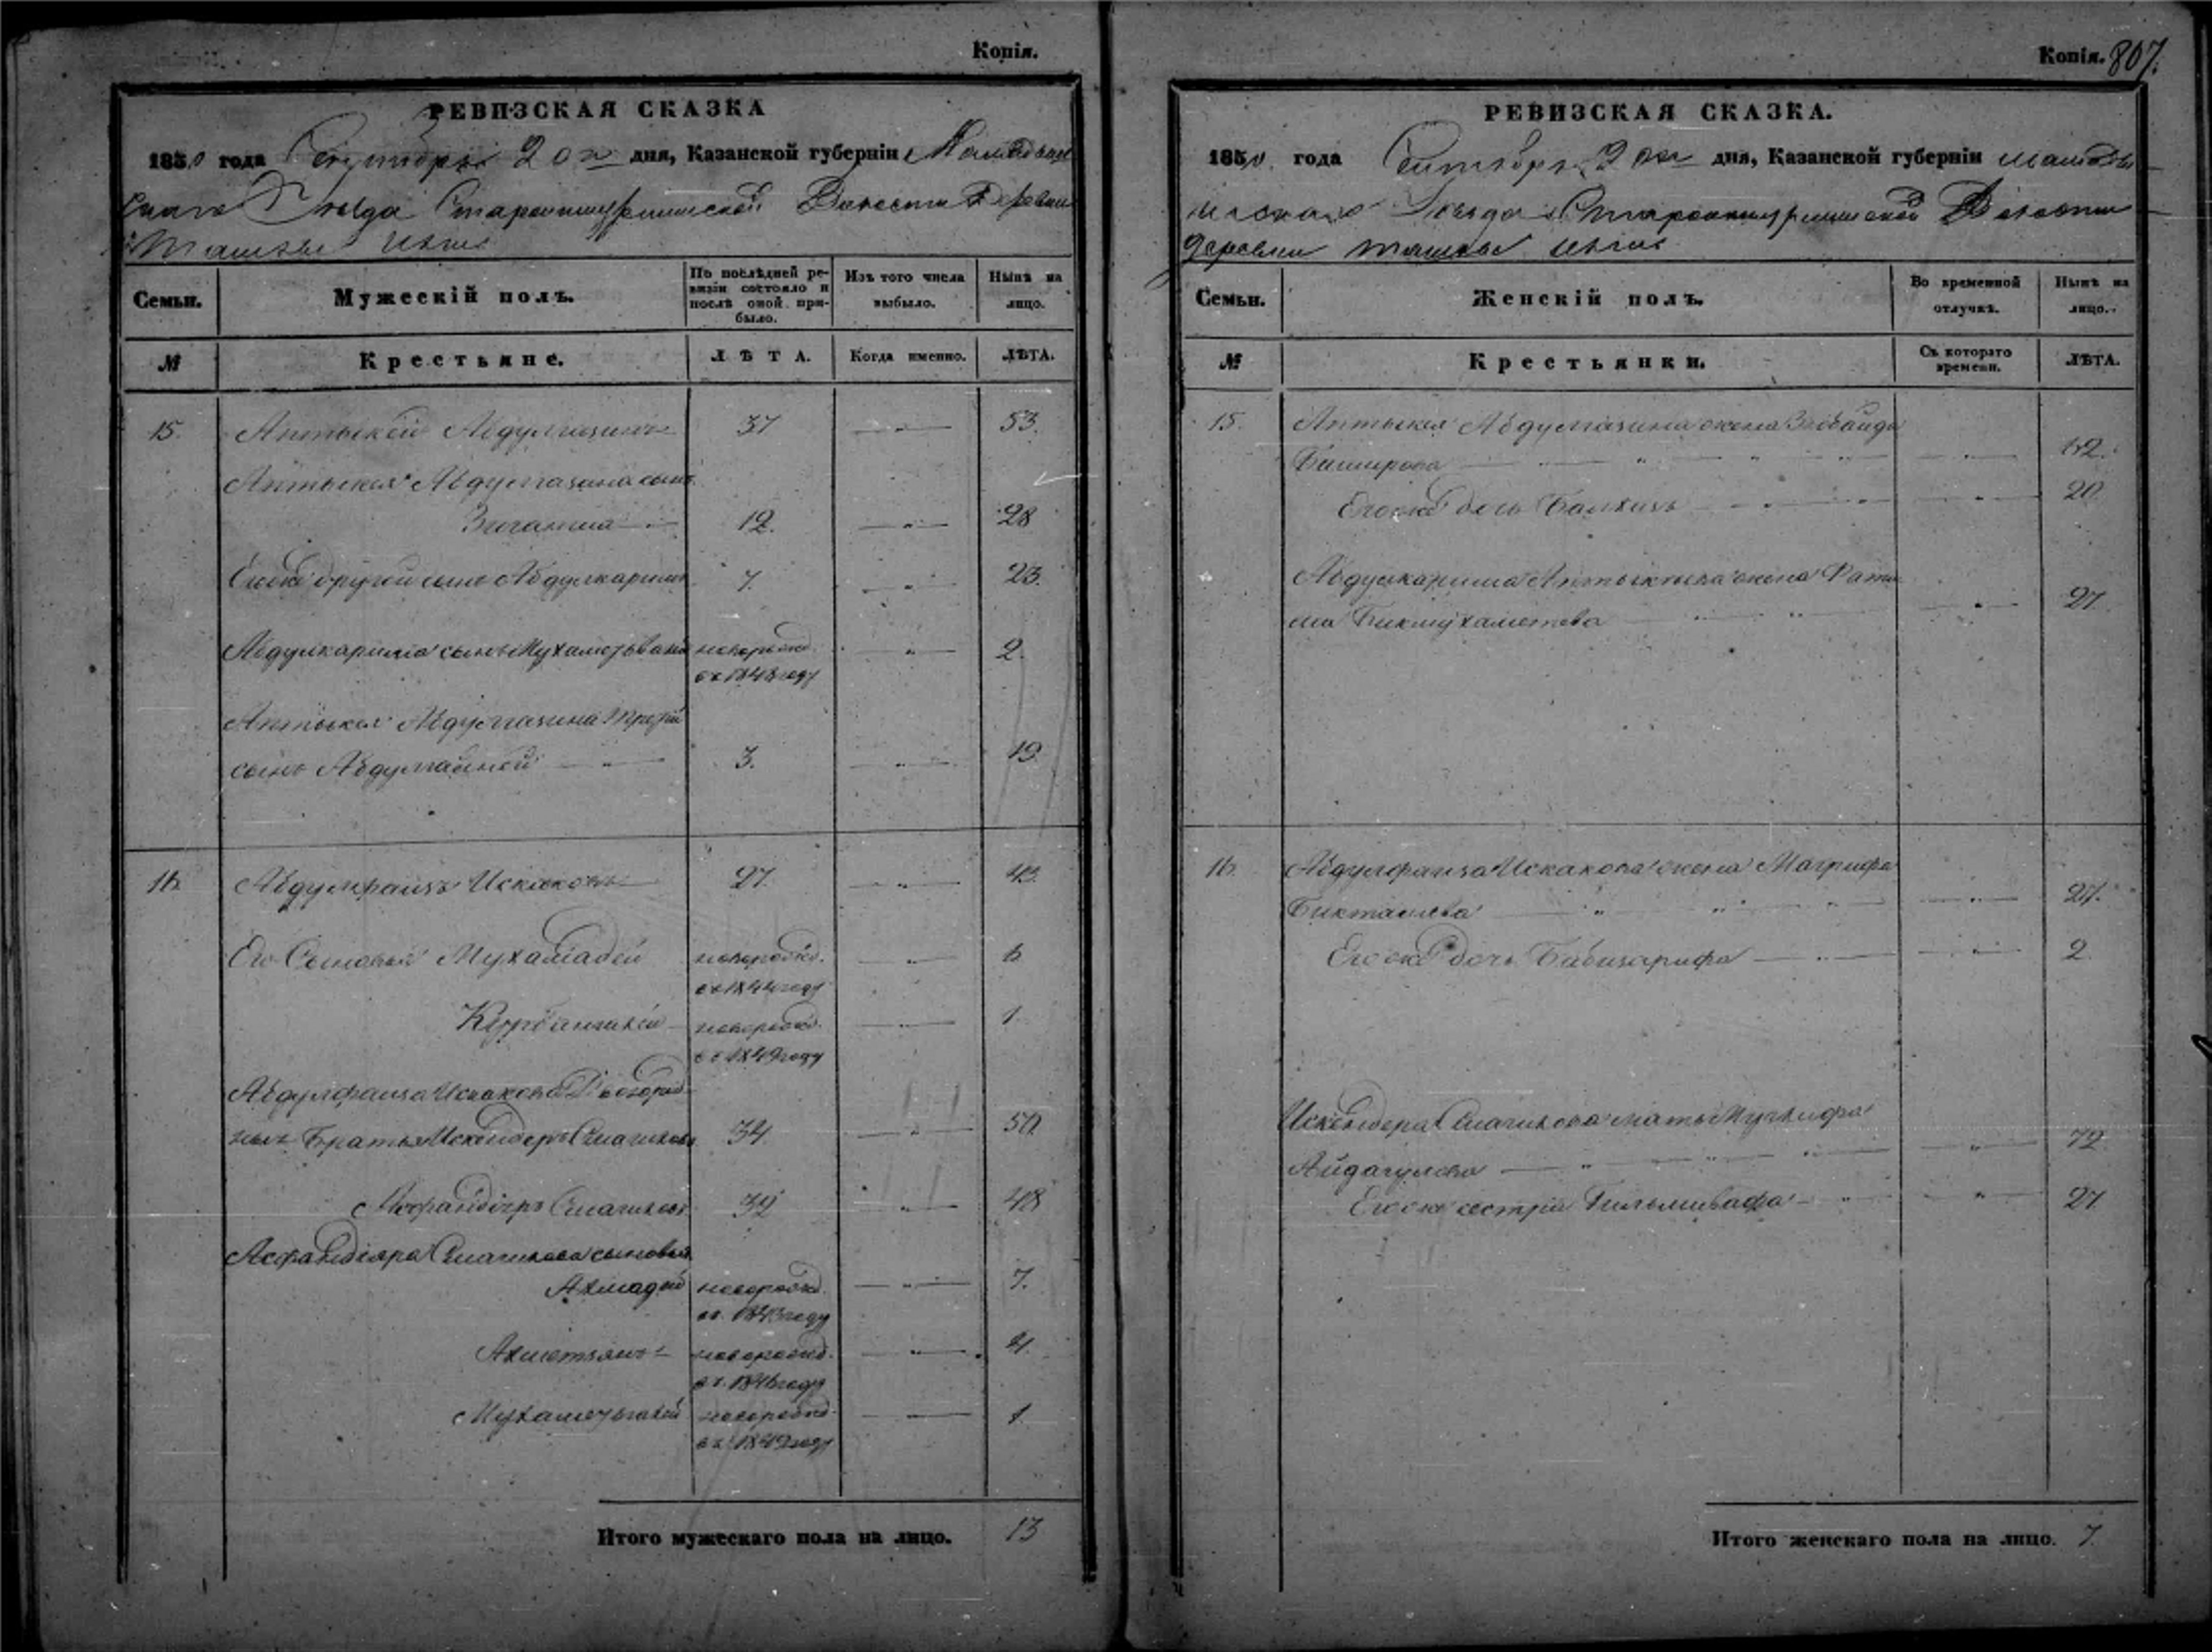 Копія.
РЕВИЗСКАЯ СКАЗКА
1850 года Сентября 2 ого дня, Казанской губерніи Мамадыш
скаго Уезда Волости Деревни
Ташлы
Семьи.
Мужескій полъ.
По послѣдней ре-
визіи состояло и
послѣ оной при-
было.
Изъ того числа
выбыло.
Нынѣ на
лицо.
№
Крестьяне.
ЛѢТА.
Когда именно.
ЛѢТА.
15. Аптыкей Абдулгазинъ 37 53.
Аптыкея Абдулгазина сынъ
Зиганша 12. 28
Егоже другой сынъ Абдулкаримъ 7. 23.
Абдулкарима сынъ новорожд. 2.
въ 1848 году
Аптыкея Абдулгазина третій
сынъ 3. 19.
16. Абдулфаизъ Искаковъ 27. 43.
Его Сыновья Мухамадей новорожд. 6
въ 1844 году
Курбангалей новорожд. 1
въ 1849 году
Абдулфаиза Искакова Двоюрод
ныя Братья Искендеръ Смагиловъ 34. 50.
Асфандіяръ Смагиловъ 32 48
Асфандіяра Смагилова сыновья
Ахмадей новорожд. 7.
въ 1843 году
Ахметзянъ новорожд. 4.
въ 1846 году
новорожд. 1
въ 1849 году
Итого мужескаго пола на лицо. 13
Копія. 807.
РЕВИЗСКАЯ СКАЗКА.
1850. года Сентября 2 ого дня, Казанской губерніи Мамады
шскаго Уезда Волости
деревни Ташлы
Семьи.
Женскій полъ.
Во временной
отлучкѣ.
Нынѣ на
лицо.
№
Крестьянки.
Съ котораго
времени.
ЛѢТА.
15. Аптыкея Абдулгазина жена Зюбайда
Баширова
Егоже дочь 20
Абдулкарима Аптыкеева жена Фати
ма Бикмухаметева 27.
16. Абдулфаиза Искакова жена Магрифа
Бикташева 27.
Егоже дочь Бибизарифа 2.
Искендера Смагилова мать
Айдагулова 72.
Егоже сестра 27.
Итого женскаго пола на лицо. 7.